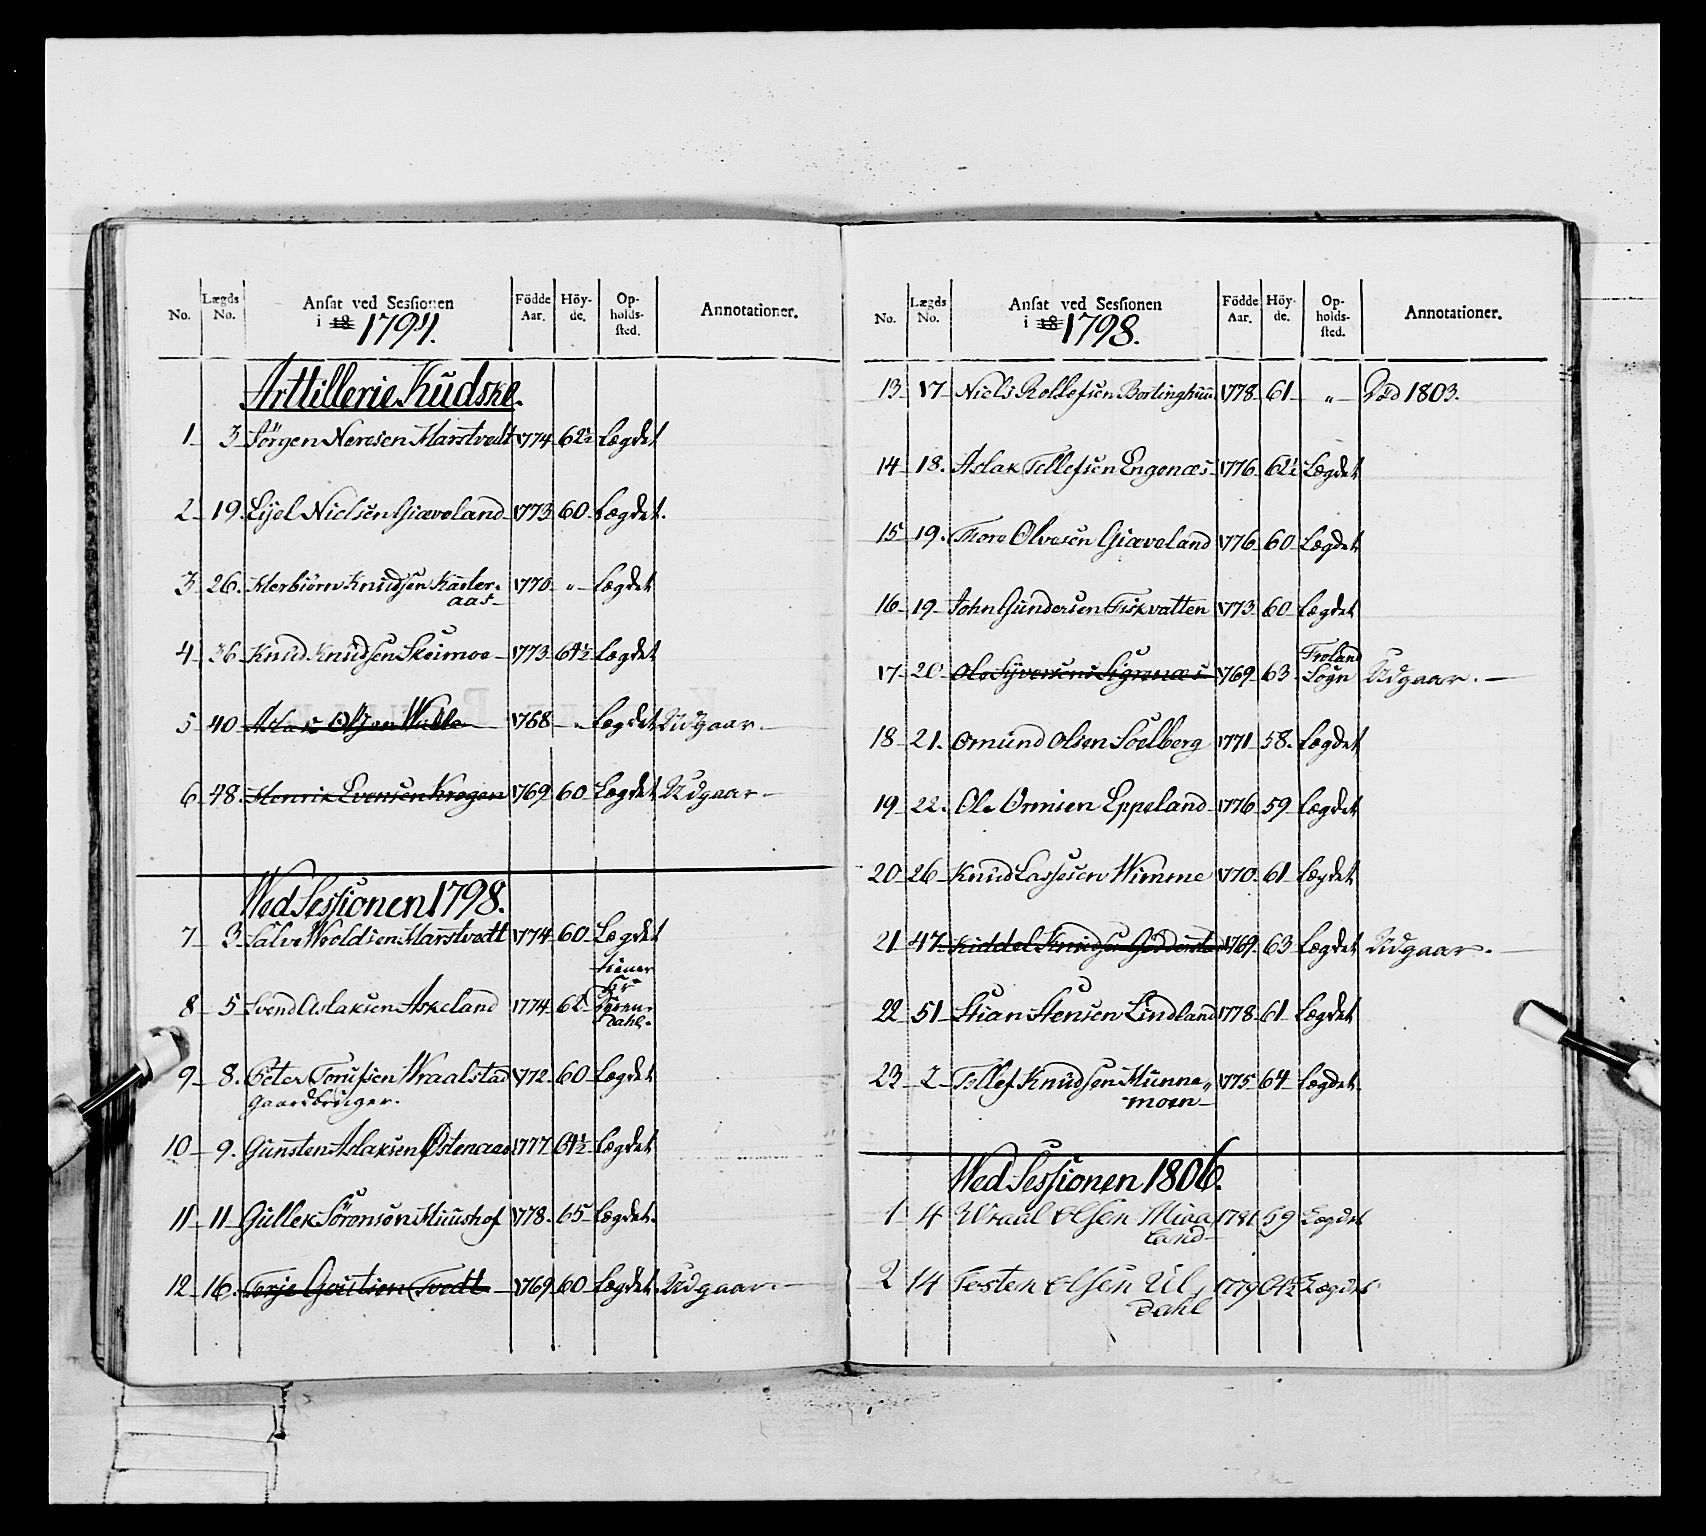 No. Lægds No. Ansat ved Sessionen i 18 1794. Födde Aar. Höyde. Opholdssted. Annotationer.
Arttillerie Kudske.
1 3 Jörgen Neresen Harstvedt 1774 62½ Lægdet
2 19. Eijel Nielsen Giæveland 1773 60 Lægdet.
3 26. Herbiörn Knudsen Kasler-
aas 1770 " Lægdet
4 36 Knud Knudsen Skeimoe 1773 61½ Lægdet
5 40 Aslak Olsen 1768 - Lægdet Udgaar.
6 48. Henrik Evensen Krogen 1769 60 Lægdet Udgaar.
Wed Sessionen 1798.
7 3 Salve Woldsen Harstvedt 1774 60 Lægdet
8 5 Svend Aslaksen Askeland 1774 62 tiener
hr
Dahl.
9 8. Peter Wraalstad 1772 60 Lægdet
Gaardbruger.
10 9. Gunsten Aslaksen Østenaas 1777 61½ Lægdet
11 11 Gullek Sörensen Huushof 1778. 65 Lægdet.
12 16. Terje Goutsen Tvedt 1769 60 Lægdet Udgaar.
No. Lægds No. Ansat ved Sessionen i 18 1798. Födde Aar. Höyde. Opholdssted. Annotationer.
13 17 Niels Rollefsen 1778 61 " Död 1803.
14 18. Aslak Tellefsen Engenæs 1776 62½ Lægdet
15 19. Tore Olvesen Giæveland 1776 60 Lægdet
16 19 John Gundersen Fiskvatten 1773 60 Lægdet
17 20 Ole Syversen 1769 63 Froland
Sogn Udgaar.
18 21. Omund Olsen Soelberg 1771 58. Lægdet
19 22. Ole Ormsen Eppeland 1776 59 Lægdet
20 26 Knud Lassesen Wimme 1770 61 Lægdet
21 47 Kiddel Knudsen 1769 63 Lægdet Udgaar.
22 51 Stian Stensen Lindland 1778 61 Lægdet
23 2 Tellef Knudsen Hunne,,
moen 1775 64 Lægdet
Wed Sessionen 1806.
1 4 Wraal Olsen Miva
land 1781 59 Lægdet
2 14 Tosten Olsen Ul,
Dahl 1779 61½ Lægdet